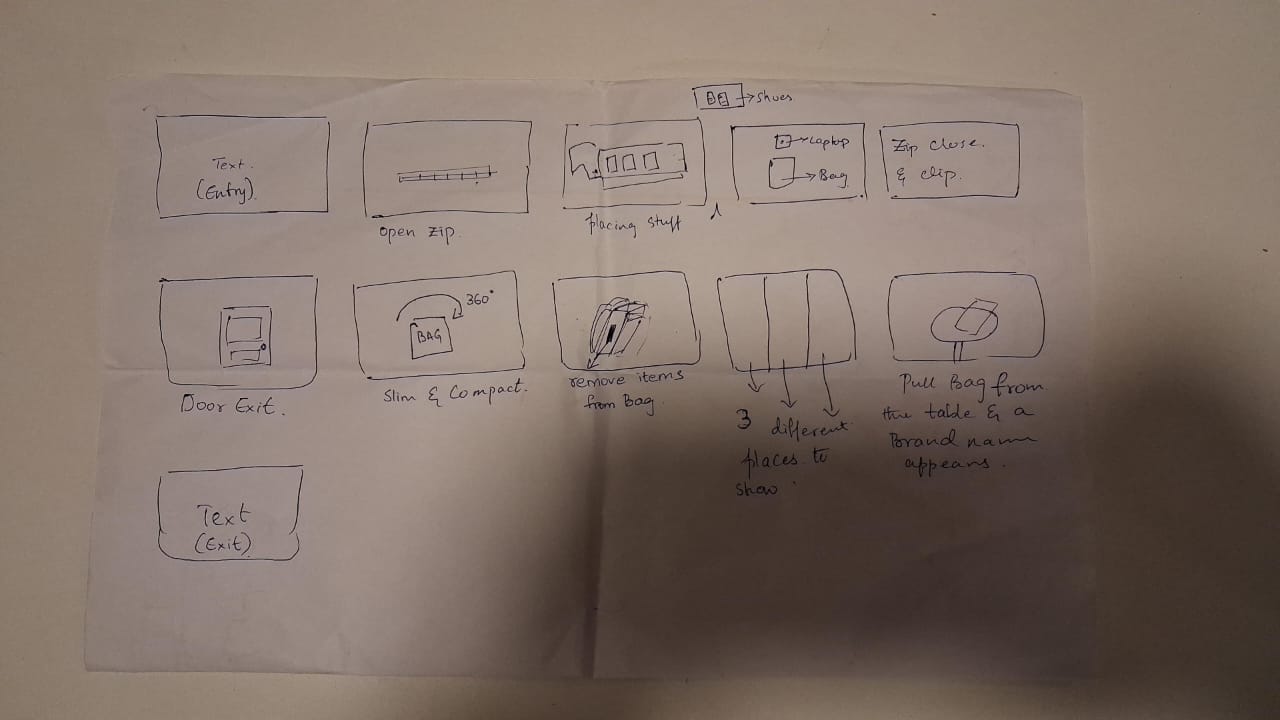 →shoes
Text.
(Entry).
open zip.
placing stuff
→Laptop
→Bag
Zip close.
& clip.
Door Exit.
360°
BAG
Slim & Compact.
remove items
from Bag
3 different
places to
show
Pull Bag from
the table & a
Brand name
appears.
Text
(Exit)